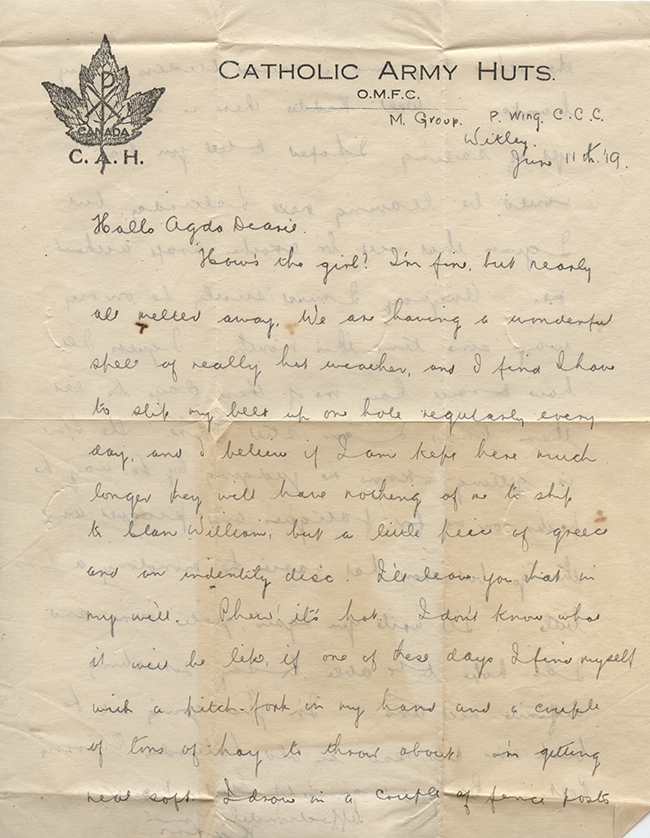 CATHOLIC ARMY HUTS.
O.M.F.C.
CANADA
C. A. H.
M. Group. P. Wing. C.C.C.
Witley.
June 11th. '19.
Hallo Agda Dearie.
How's the girl? I'm fine, but nearly
all melted away. We are having a wonderful
spell of really hot weather, and I find I have
to slip my belt up one hole regularly every
day, and I believe if I am kept here much
longer they will have nothing of me to ship
to Clan William, but a little piece of greece
and an indentity disc. I'll leave you that in
my will. Phew! it's hot. I don't know what
it will be like, if one of these days I find myself
with a pitch-fork in my hand and a couple
of tons of hay to throw about. I'm getting
real soft. I drove in a couple of fence posts